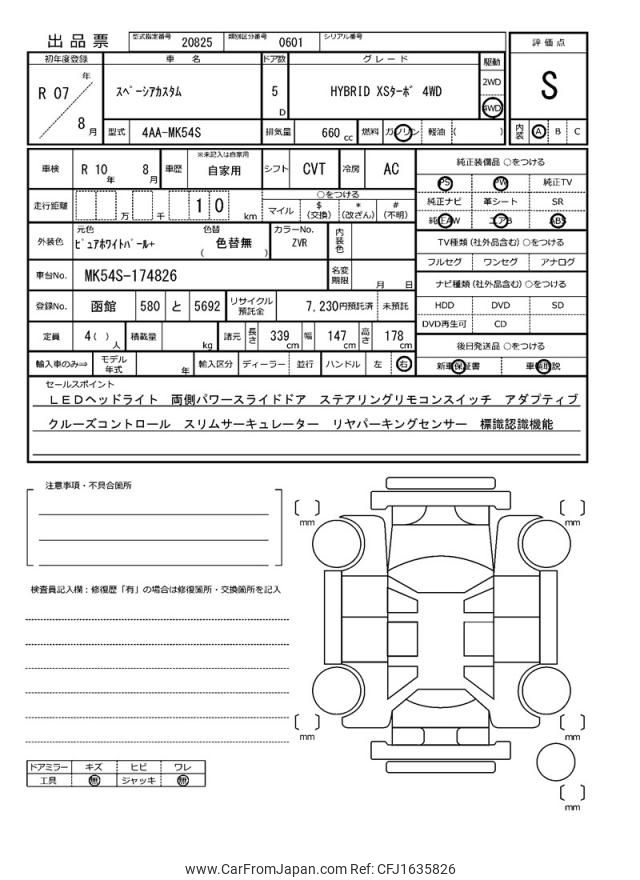 出品票 型式指定番号 20825 類別区分番号 0601 シリアル番号
初年度登録 車名 ドア数 グレード 駆動 評価点
R 07 年 8 月 スペーシアカスタム 5 D HYBRID XSターボ 4WD 2WD 4WD S
型式 4AA-MK54S 排気量 660 cc 燃料 ガソリン 軽油 ( ) 内装 A B C
車検 R 10 年 8 月 車歴 ※未記入は自家用 自家用 シフト CVT 冷房 AC
純正装備品 ○をつける
PS PW 純正TV
純正ナビ 革シート SR
純正AW エアB ABS
走行距離 万 千 1 0 km ○をつける
マイル $ (交換) * (改ざん) # (不明)
外装色 元色 ピュアホワイトパール+ 色替 ( 色替無 ) カラーNo. ZVR 内装色
TV種類 (社外品含む) ○をつける
フルセグ ワンセグ アナログ
車台No. MK54S-174826 名変期限 月 日
ナビ種類 (社外品含む) ○をつける
登録No. 函館 580 と 5692 リサイクル預託金 7,230円預託済 未預託
HDD DVD SD
DVD再生可 CD
定員 4( ) 人 積載量 kg 諸元 長さ 339 cm 幅 147 cm 高さ 178 cm
後日発送品 ○をつける
輸入車のみ⇒ モデル年式 年 輸入区分 ディーラー 並行 ハンドル 左 右
新車保証書 車輌取説
セールスポイント
LEDヘッドライト 両側パワースライドドア ステアリングリモコンスイッチ アダプティブ
クルーズコントロール スリムサーキュレーター リヤパーキングセンサー 標識認識機能
注意事項・不具合箇所
[ ] mm
[ ] mm
検査員記入欄：修復歴「有」の場合は修復箇所・交換箇所を記入
[ ] mm
[ ] mm
ドアミラー キズ ヒビ ワレ
工具 無 ジャッキ 無
[ ] mm
www.CarFromJapan.com Ref: CFJ1635826